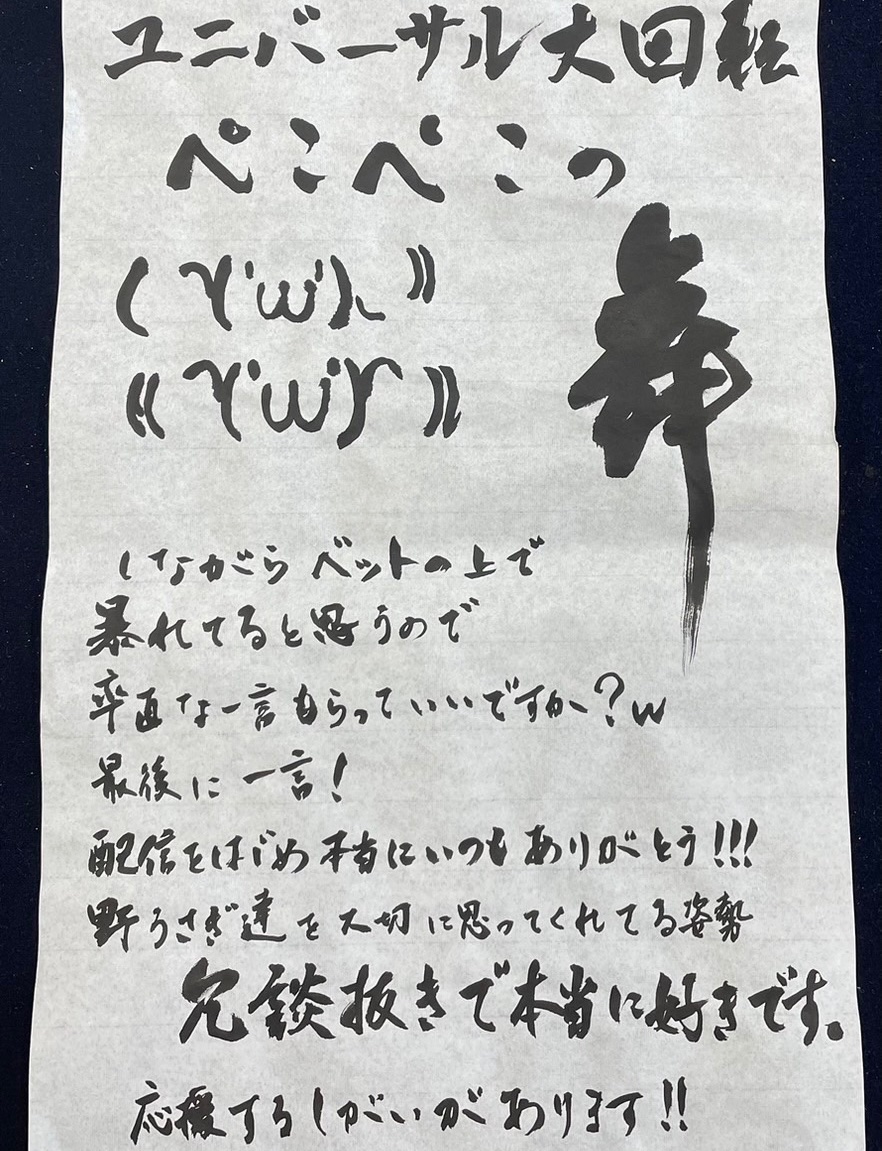 ユニバーサル大回転
ぺこぺこの
舞
( Y'ω')、))
(( Y'ω'Y ))
しながらベットの上で
暴れてると思うので
率直な一言もらっていいですか?w
最後に一言!
配信をはじめ本当にいつもありがとう!!!
野うさぎ達を大切に思ってくれてる姿勢
冗談抜きで本当に好きです。
応援するしがいがあります!!